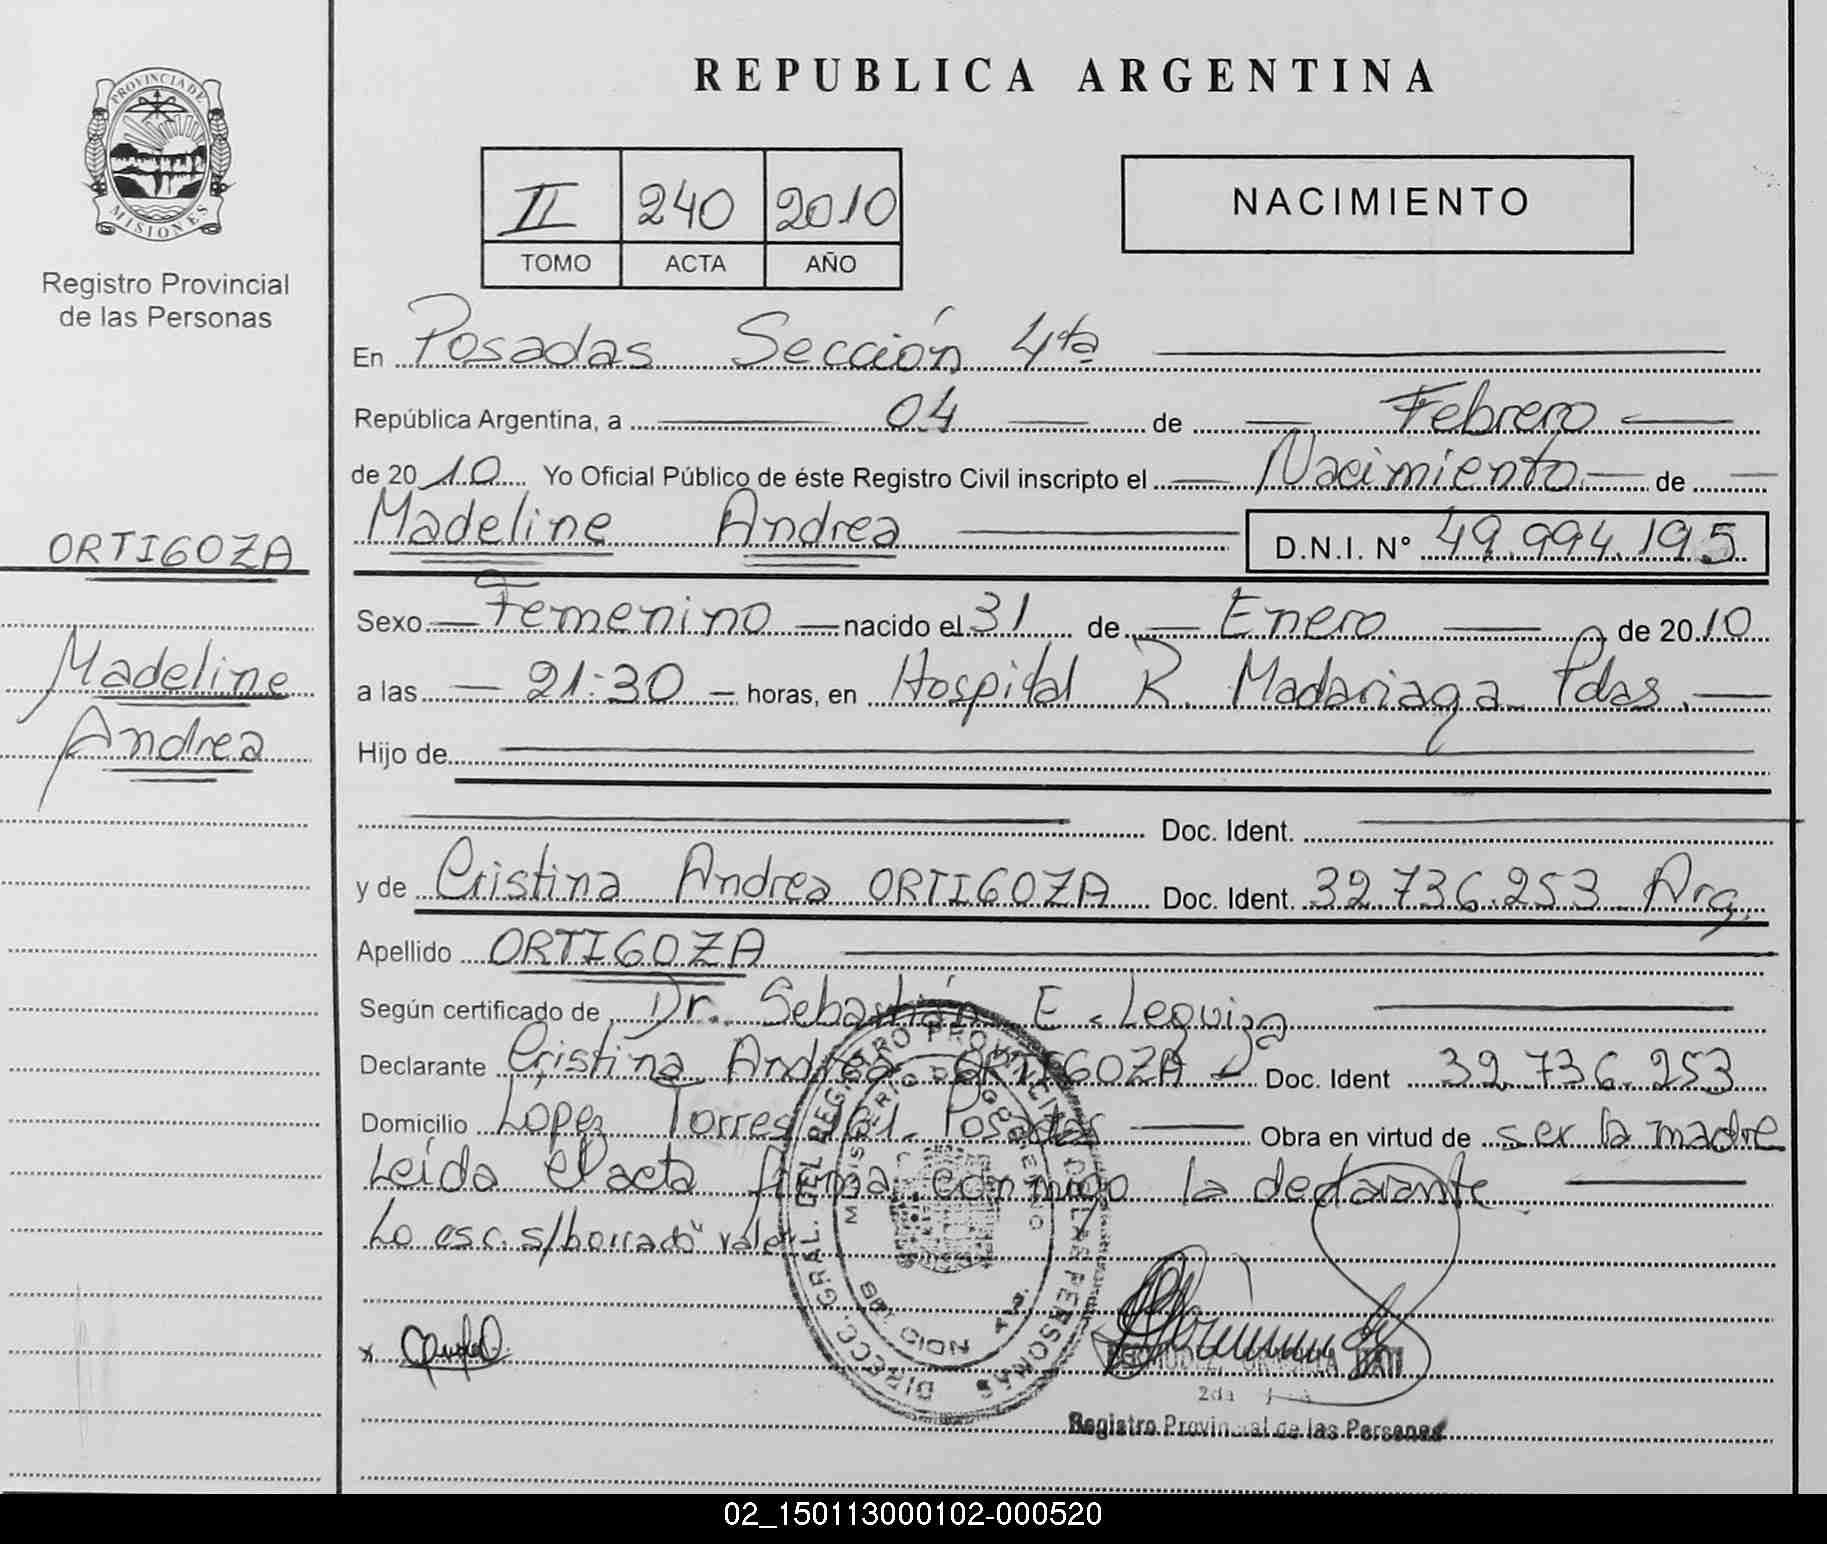 PROVINCIA DE
MISIONES
Registro Provincial
de las Personas
ORTIGOZA
Madeline
Andrea
REPUBLICA ARGENTINA
II 240 2010
TOMO ACTA AÑO
NACIMIENTO
En Posadas Sección 4ta
República Argentina, a 04 de Febrero
de 2010 Yo Oficial Público de éste Registro Civil inscripto el Nacimiento de
Madeline Andrea D.N.I. N° 49.994.195
Sexo Femenino nacido el 31 de Enero de 2010
a las 21:30 horas, en Hospital R. Madariaga Pdas.
Hijo de
Doc. Ident.
y de Cristina Andrea ORTIGOZA Doc. Ident. 32.736.253 Arg.
Apellido ORTIGOZA
Según certificado de Dr. Sebastián E. Leguiza
Declarante Cristina Andrea ORTIGOZA Doc. Ident 32.736.253
Domicilio Lopez Torres Posadas Obra en virtud de ser la madre
Leída el acta firma conmigo la declarante
Lo esc. s/borrado" vale
DIRECC. GRAL. DEL REGISTRO PROVINCIAL DE LAS PERSONAS
MINISTERIO DE GOBIERNO
x
Registro Provincial de las Personas
02_150113000102-000520